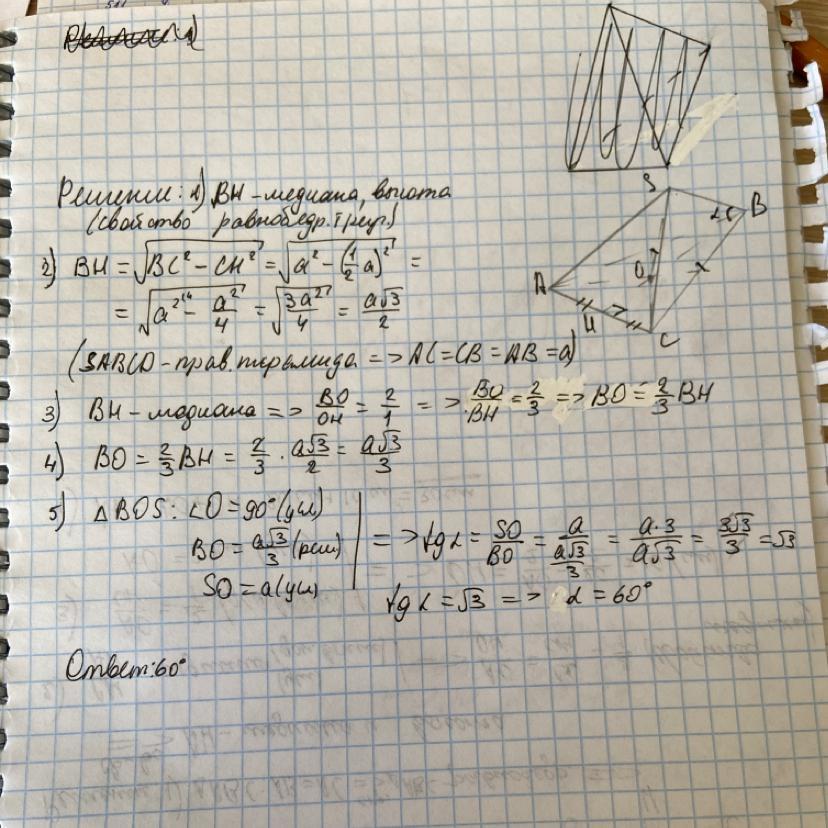 Решение: 1) BH - медиана, высота
(свойство равнобедр. треуг.)
2) BH = √(BC² - CH²) = √(a² - (1/2 a)²) =
= √(a² - a²/4) = √(3a²/4) = a√3/2
(SABCD - прав. пирамида => AC = CB = AB = a)
3) BH - медиана => BO/OH = 2/1 => BO/BH = 2/3 => BO = 2/3 BH
4) BO = 2/3 BH = 2/3 · a√3/2 = a√3/3
5) △BOS: ∠O = 90° (усл)
BO = a√3/3 (реш)
SO = a (усл)
=> tg α = SO/BO = a/(a√3/3) = a·3/a√3 = 3√3/3 = √3
tg α = √3 => α = 60°
Ответ: 60°
S
B
α
O
A
H
C